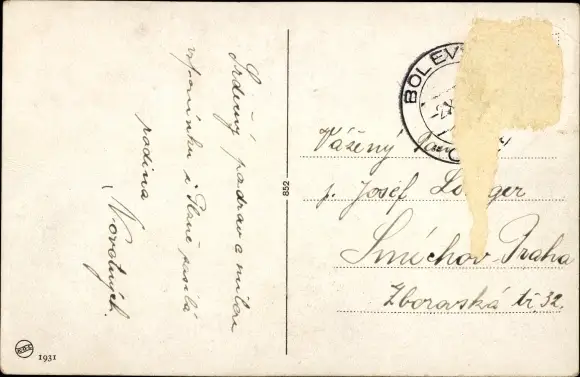 Srdečný pozdrav a milou
vzpomínku z Plané posílá
rodina
Novotných.
852
BOLEV
Vážený Pan
p. Josef
Smíchov-Praha
Zborovská tř. 32
1931